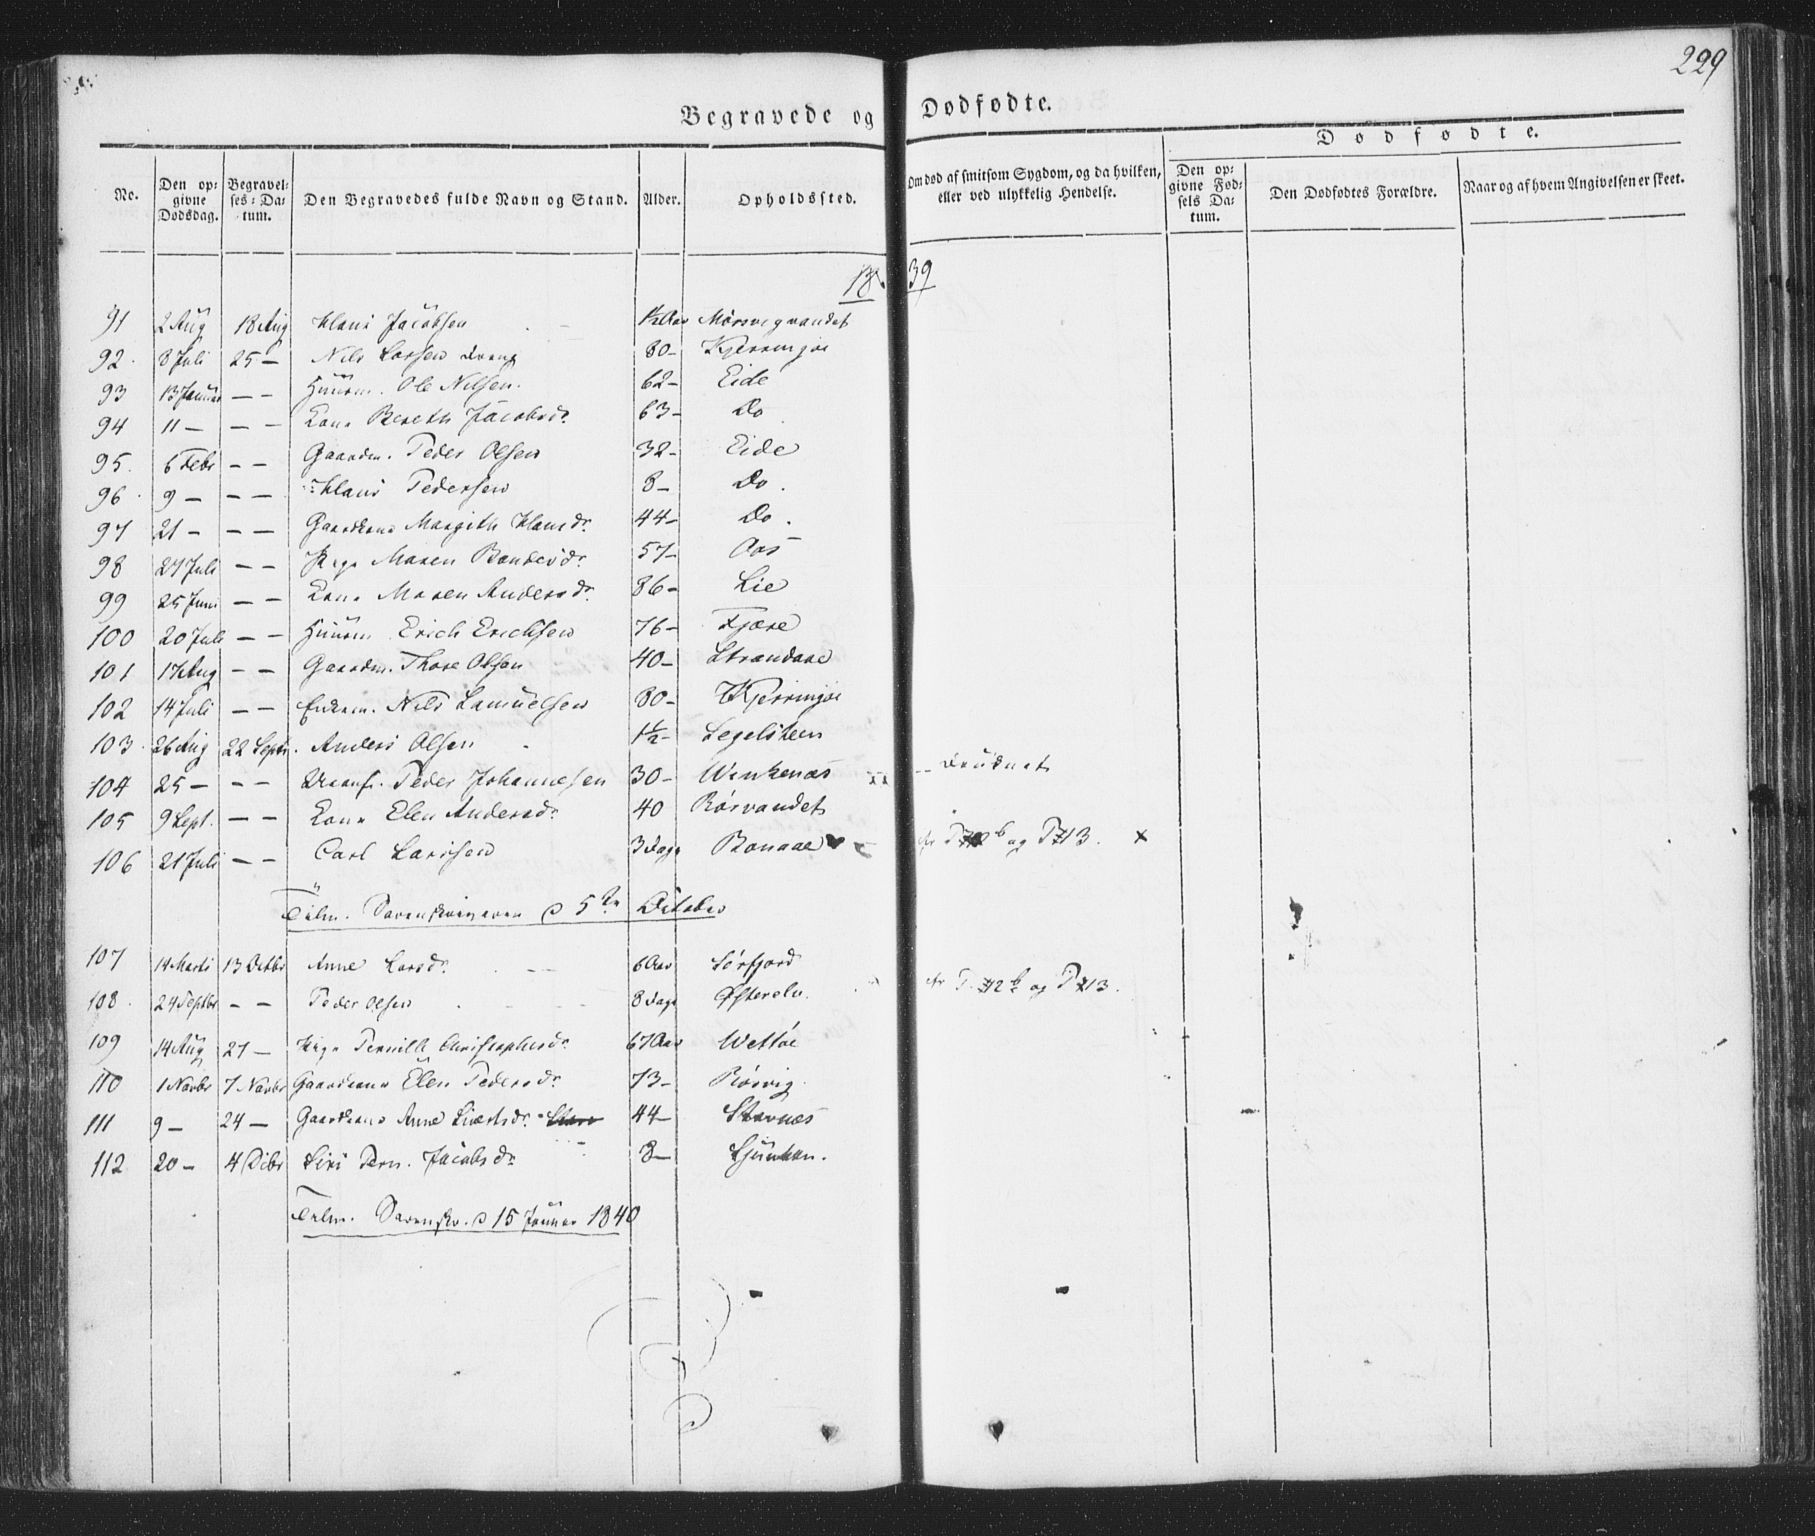 229
Begravede og Dødfødte.
Dødfødte.
No.
Den opgivne Dødsdag.
Begravelses-Datum.
Den Begravedes fulde Navn og Stand.
Alder.
Opholdssted.
Om død af smitsom Sygdom, og da hvilken, eller ved ulykkelig Hendelse.
Den opgivne Fødsels Datum.
Den Dødfødtes Forældre.
Naar og af hvem Angivelsen er skeet.
1839
91 2 Aug 18 Aug Hans Jacobsen Aar Mørsvigvandet
92. 8 Juli 25 — Nils Larsen 80 - Kjerringøe
93 13 Januar — — Huusm. Ole Nilsen. 62 - Eide
94 11 — — — Kone Bereth Jacobsdr. 63 - Do
95. 6 Febr — — Gaardm. Peder Olsen 32 - Eide
96. 9 — — — Hans Pedersen 8 - Do.
97 21 - — — Gaardkone Margith Hansdr. 44 - Do.
98 27 Juli — — Maren 57 - Aas
99 25 Juni — — Kone Maren Andersdr. 86 - Lie
100 20 Juli — — Huusm Erich Erichsen 76 - Fjære
101 17 Aug — — Gaardm. Thore Olsen 40 - Strandaae
102 14 Juli — — Enkem. Nils Samuelsen 80 - Kjerringøe
103. 26 Aug 22 Septr. Anders Olsen 1½ - Segelsteen
104 25 — — — Peder Johannesen 30 - Winkenæs — Druknet
105 9 Sept. — — Kone Elen Andersdr. 40 Rørvandet
106 21 Juli — — Carl Larssen 3 Dage Bonaae og P. 213. x
5te October
107 14 Marts 13 Octbr Anne Larsdr. 6 Aar Sørfjord
108. 24 Septbr — — Peder Olsen 8 Dage Østerelv. P. 212 b og P. 213.
109 14 Aug 27 — Pernille Christophersdr. 67 Aar Wettøe
110 1 Novbr 7 Novbr Gaardkone Elen Pedersdr. 73 - Rørvig
111 9 — 24 — Gaardkone Anne Sivertsdr. 44 - Stavnes
112 20 — 4 Dcbr Siri Jacobsdr 8 - Sjunhavn.
15 Januar 1840